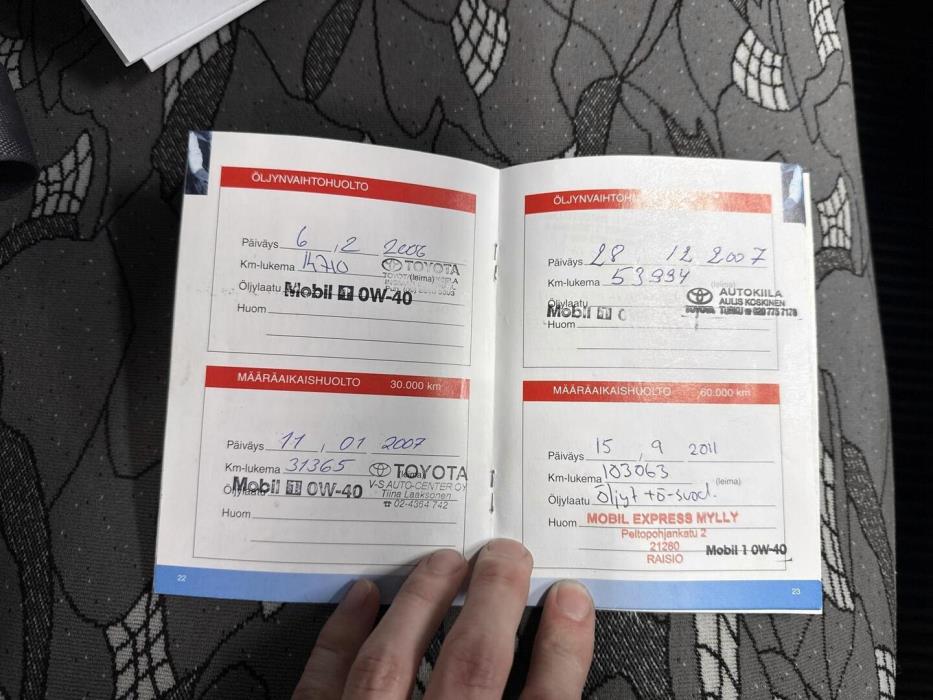 ÖLJYNVAIHTOHUOLTO
Päiväys 6 . 2 2006
Km-lukema 14710
TOYOTA
(leima)
Öljylaatu Mobil 1 0W-40
Huom
MÄÄRÄAIKAISHUOLTO 30.000 km
Päiväys 11 . 01 2007
Km-lukema 31365
TOYOTA
V-S AUTO-CENTER OY
Tiina Laaksonen
☎ 02-4364 742
Öljylaatu Mobil 1 0W-40
Huom
22
ÖLJYNVAIHTOH
Päiväys 28 12 2007
Km-lukema 53994
(leima)
Öljylaatu
Mobil 1 0
TOYOTA
AUTOKIILA
AULIS KOSKINEN
TURKU ☎ 020 775 7178
Huom
MÄÄRÄAIKAISHUOLTO 60.000 km
Päiväys 15 . 9 2011
Km-lukema 103063
(leima)
Öljylaatu Öljyt +ö-suod.
Huom MOBIL EXPRESS MYLLY
Peltopohjankatu 2
21280
RAISIO
Mobil 1 0W-40
23